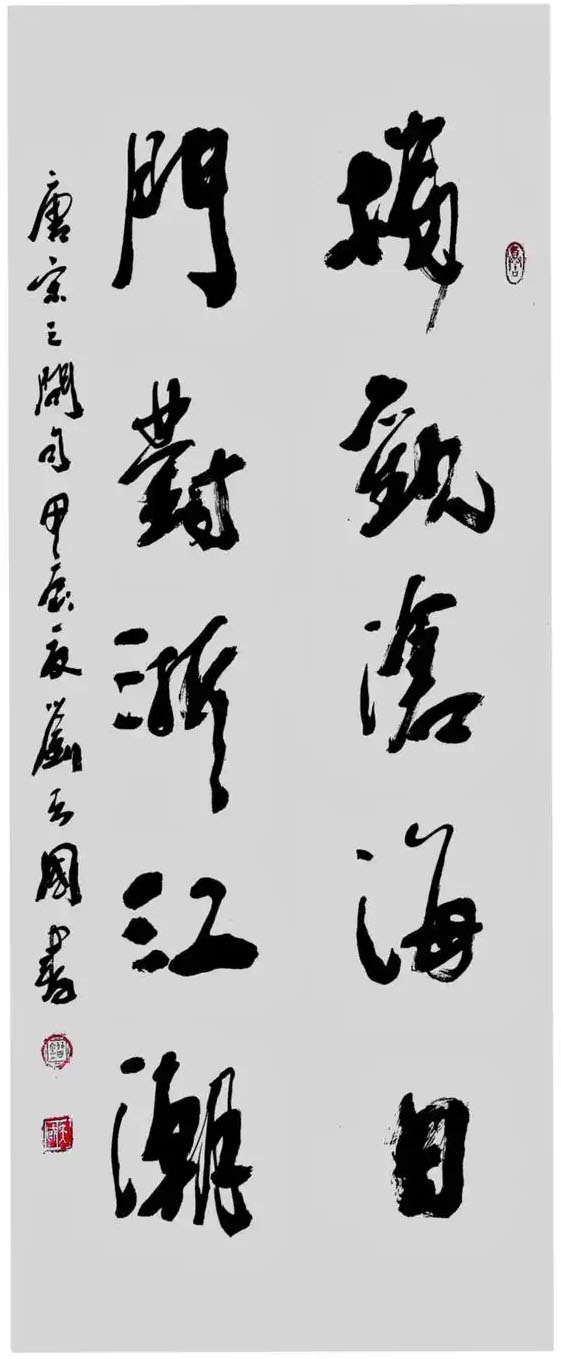 樓觀滄海日
門對浙江潮
唐宋之問句甲辰夏劉國書